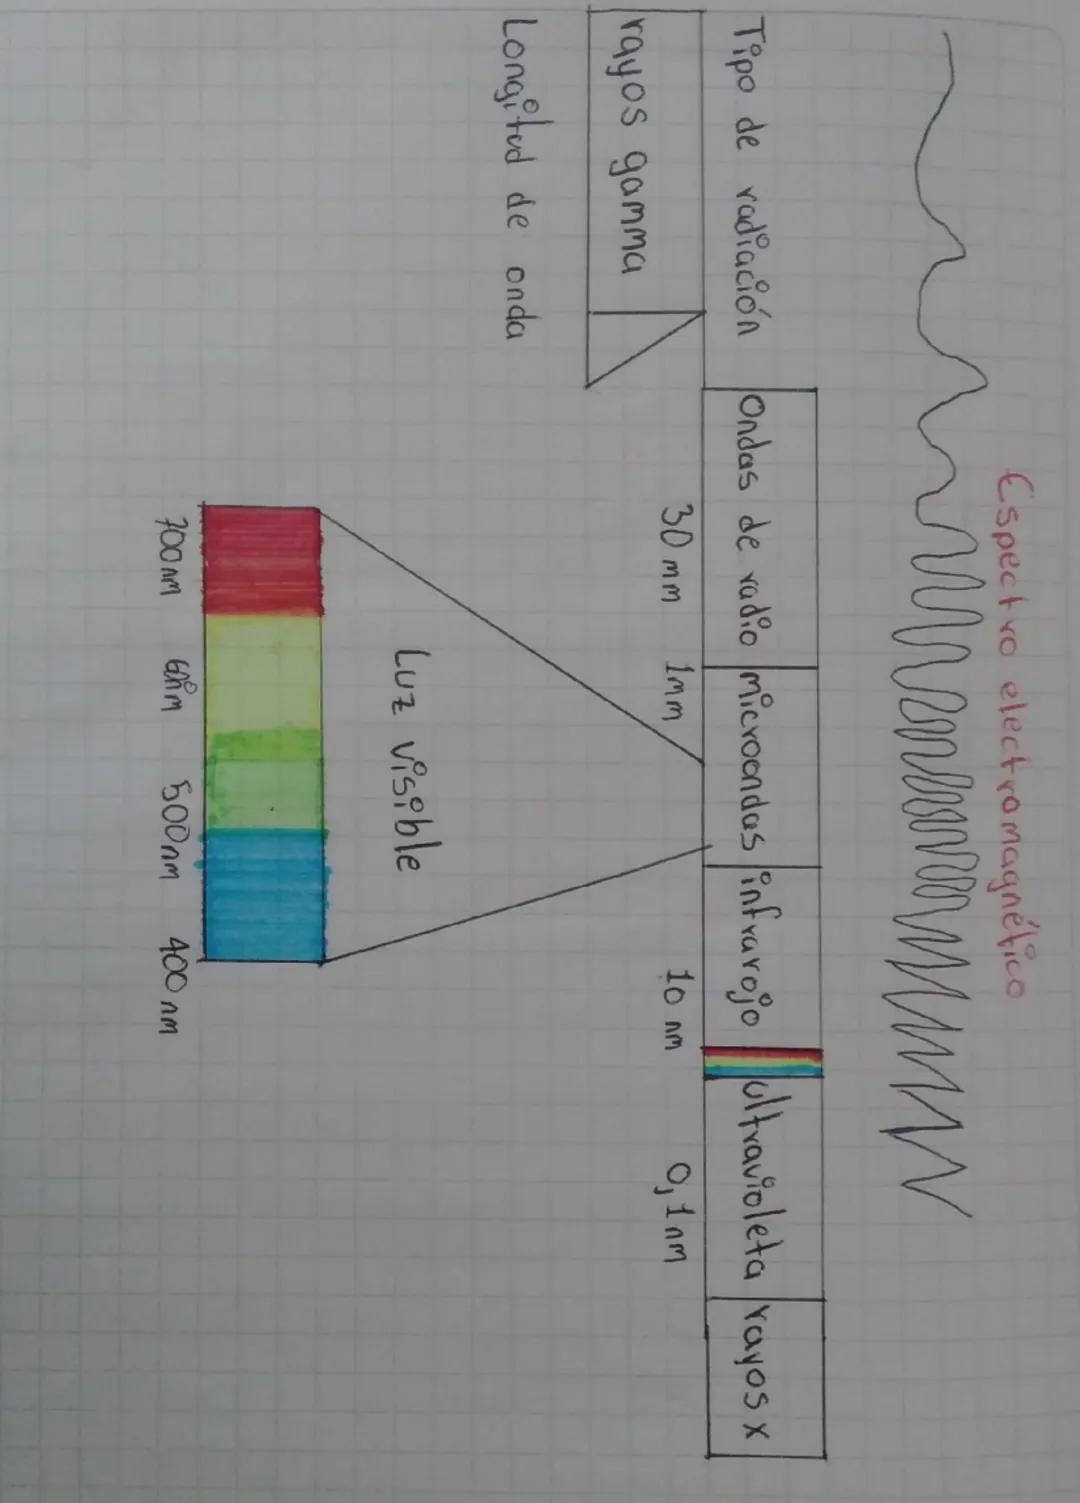 Espectro electromagnético
Tipo de radiación
Ondas de radio microondas infrarojo ultravioleta rayos x
rayos gamma
30 mm 1mm 10 nm 0,1nm
Longitud de onda
Luz visible
700nm 500nm 400 nm